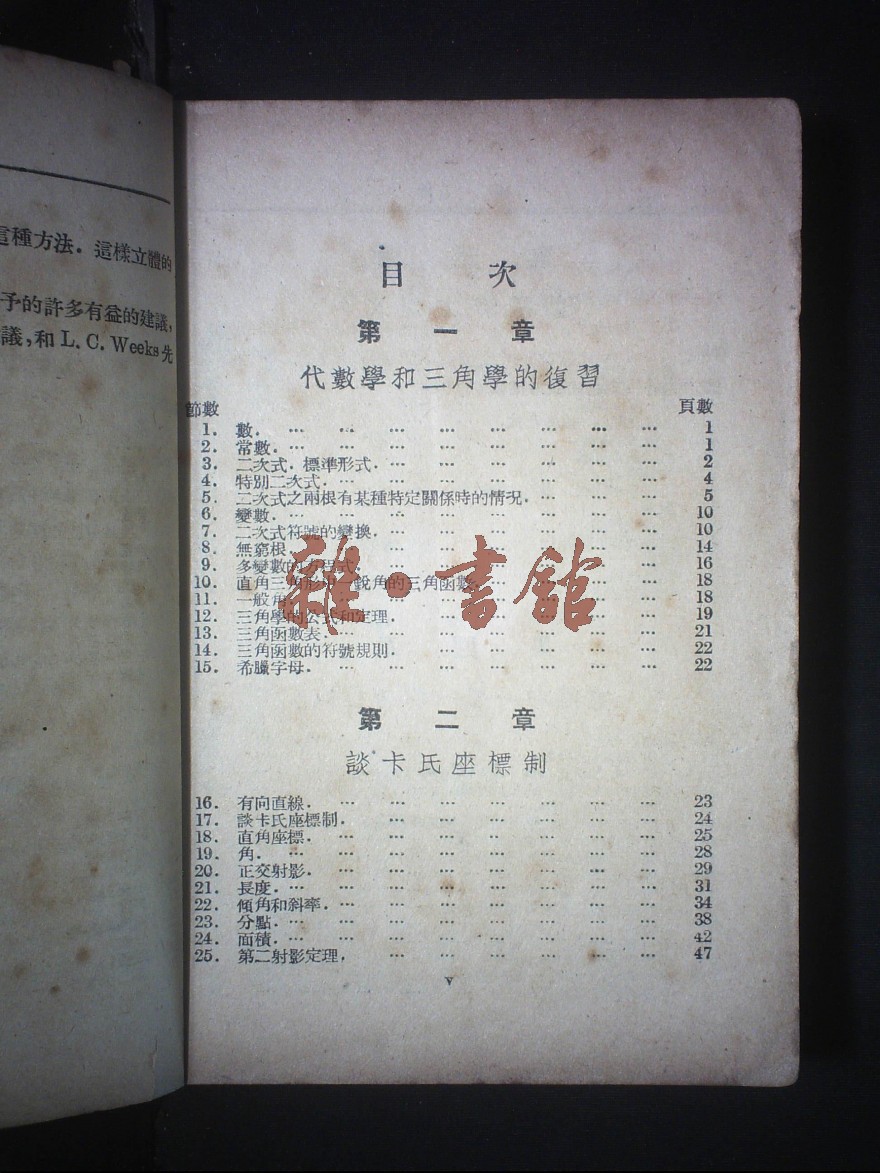 這種方法．這樣立體的
予的許多有益的建議，
議，和 L. C. Weeks 先
目 次
第 一 章
代數學和三角學的復習
節數 頁數
1. 數． … … … … … … … … 1
2. 常數． … … … … … … … … 1
3. 二次式．標準形式． … … … … … … 2
4. 特別二次式． … … … … … … … 4
5. 二次式之兩根有某種特定關係時的情況． … … … 5
6. 變數． … … … … … … … … 10
7. 二次式符號的變換． … … … … … … 10
8. 無窮根． … … … … … … … 14
9. 多變數的方程式． … … … … … … 16
10. 直角三角形中 銳角的三角函數． … … … … 18
11. 一般角． … … … … … … … 18
12. 三角學的公式和定理． … … … … … … 19
13. 三角函數表． … … … … … … … 21
14. 三角函數的符號規則． … … … … … … 22
15. 希臘字母． … … … … … … … 22
雜·書館
第 二 章
談卡氏座標制
16. 有向直線． … … … … … … … 23
17. 談卡氏座標制． … … … … … … 24
18. 直角座標． … … … … … … … 25
19. 角． … … … … … … … … 28
20. 正交射影． … … … … … … … 29
21. 長度． … … … … … … … … 31
22. 傾角和斜率． … … … … … … … 34
23. 分點． … … … … … … … … 38
24. 面積． … … … … … … … … 42
25. 第二射影定理． … … … … … … 47
v